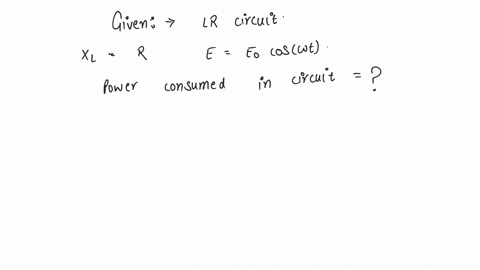 Given: → LR circuit.
X_L = R E = E_0 cos(ωt).
Power consumed in circuit = ?